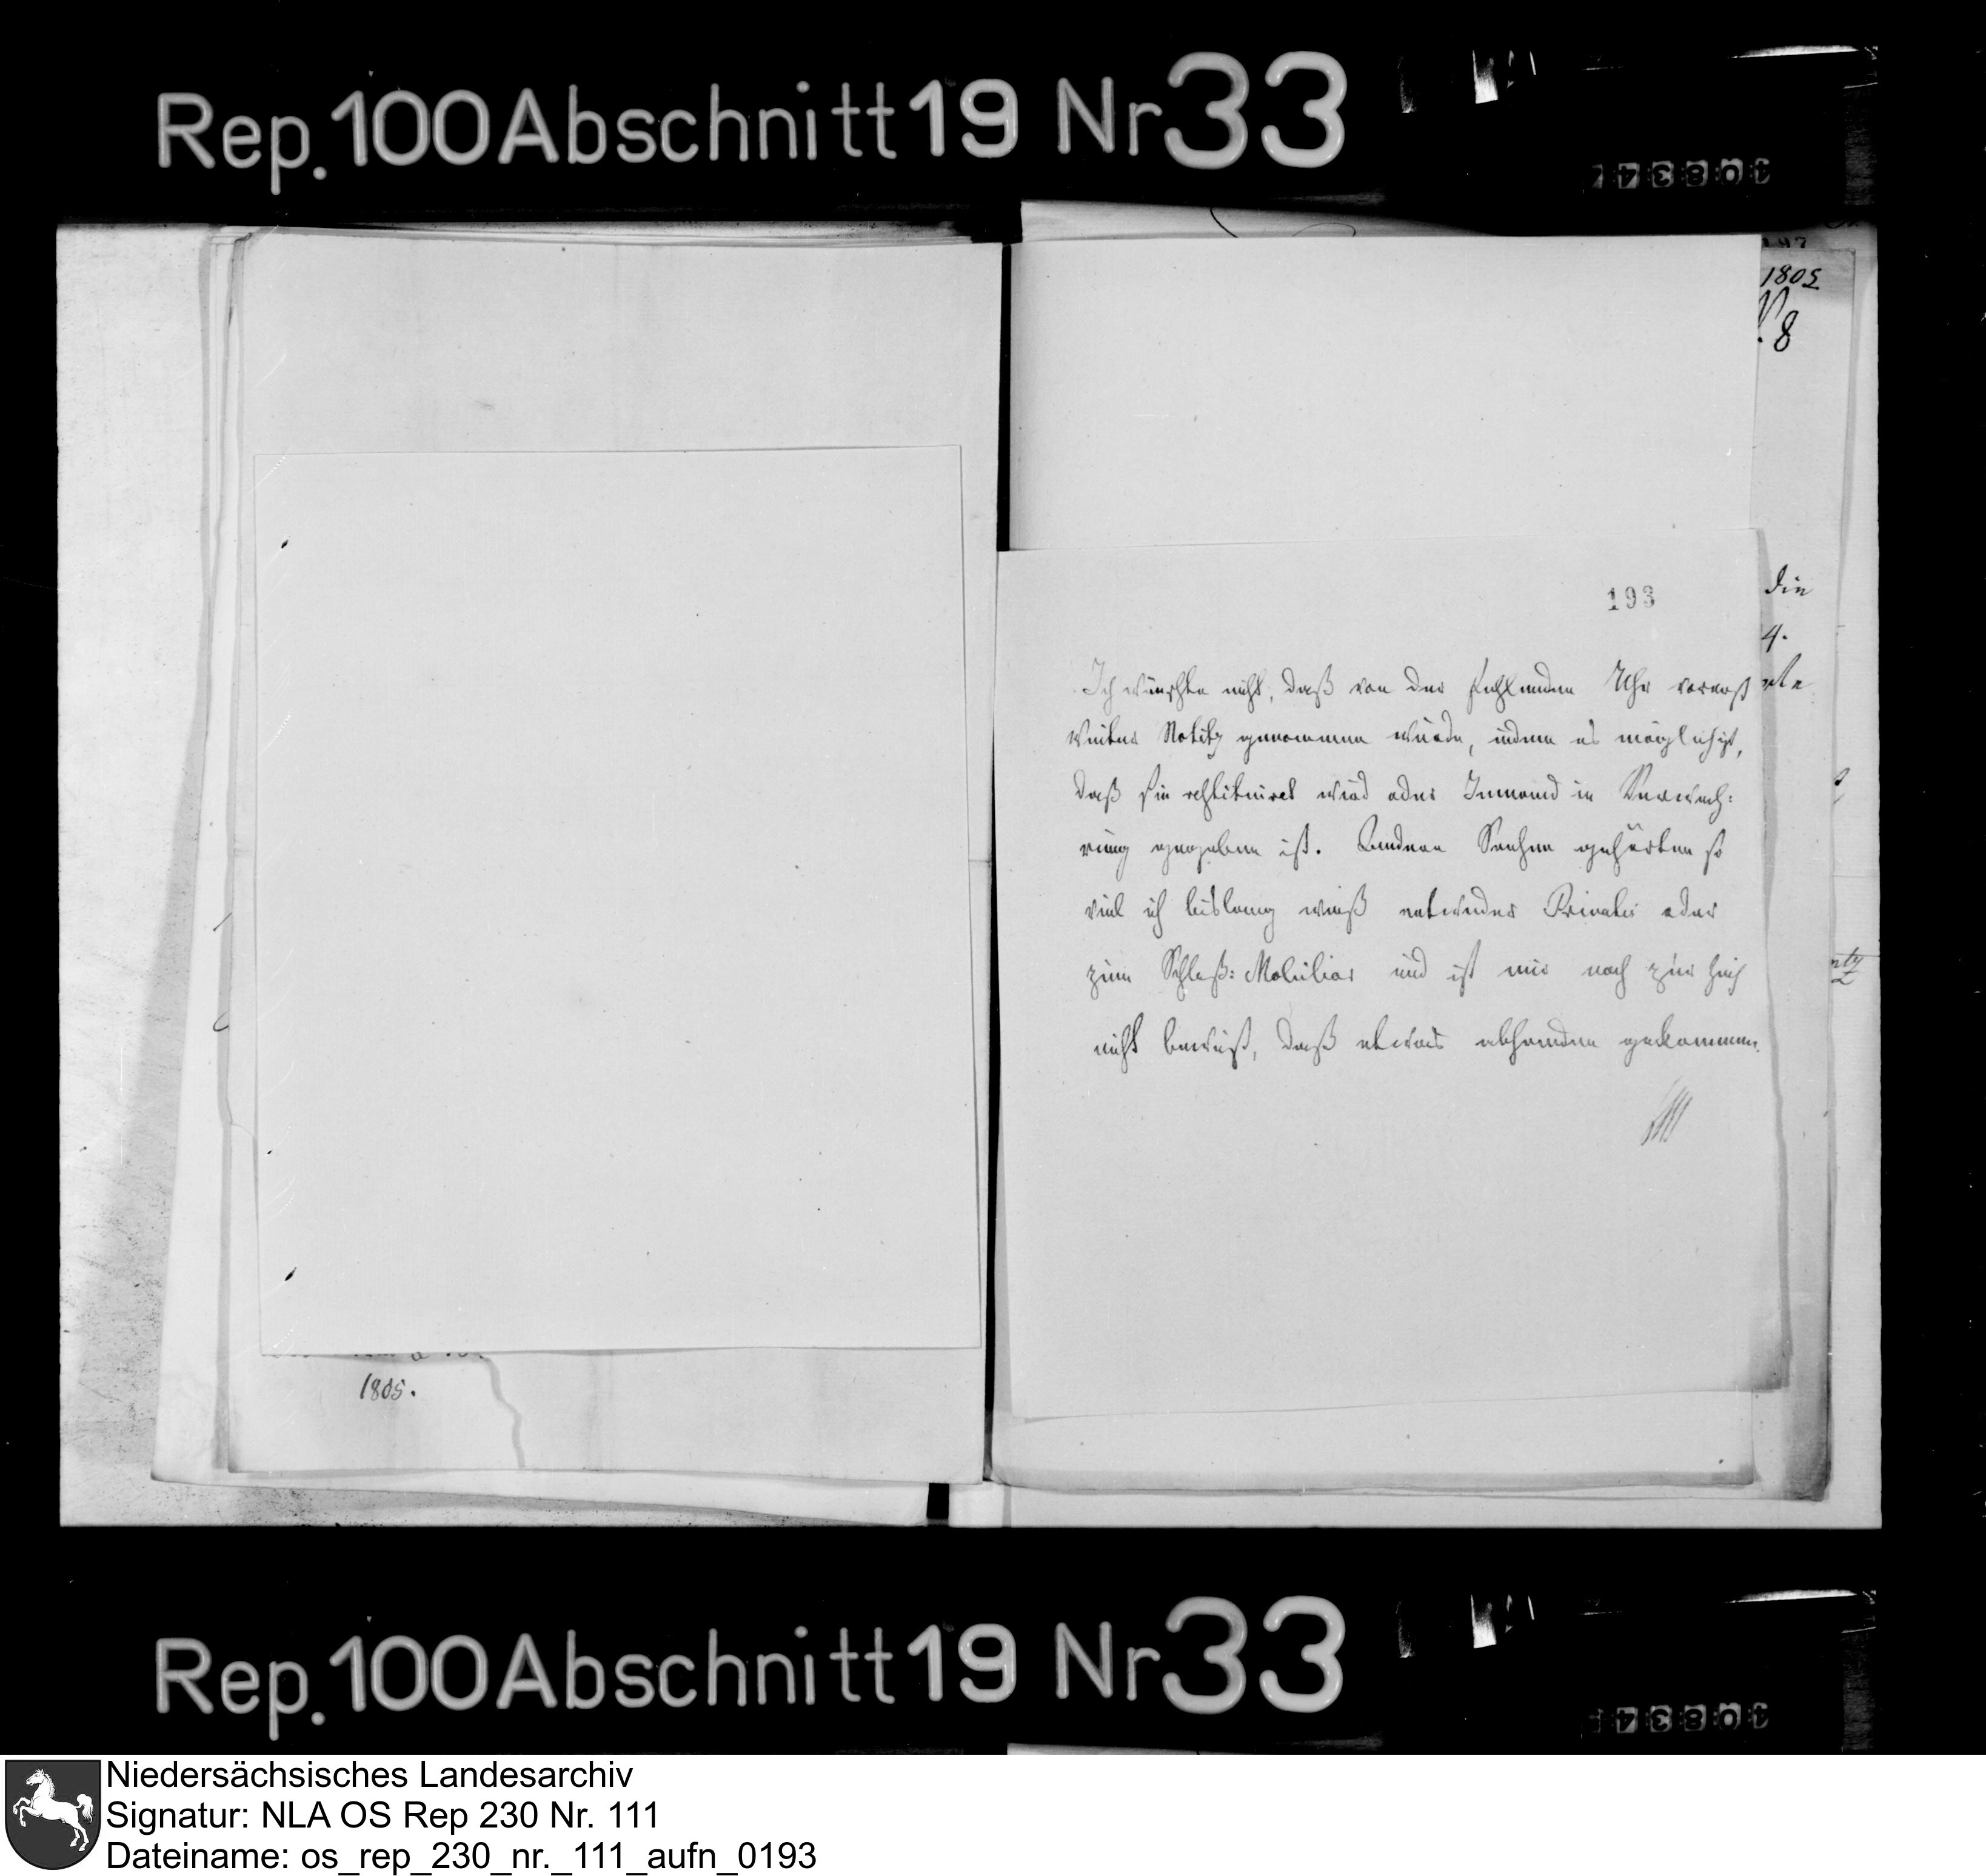 Rep. 100 Abschnitt 19 Nr 33
1805
8
193
die
4.
Ich wünschte nicht, daß von der fehlenden Uhr vorerst
weiter Notitz genommen würde, indem es möglich ist,
daß sie restituiret wird oder Jemand in Verwah:
rung gegeben ist. Andere Sachen gehörten so
viel ich bislang weiß entweder Privatis oder
zum Schloß: Mobiliar und ist mir noch zur Zeit
nicht bewußt, daß etwas abhanden gekommen.
1805.
Rep. 100 Abschnitt 19 Nr 33
Niedersächsisches Landesarchiv
Signatur: NLA OS Rep 230 Nr. 111
Dateiname: os_rep_230_nr._111_aufn_0193